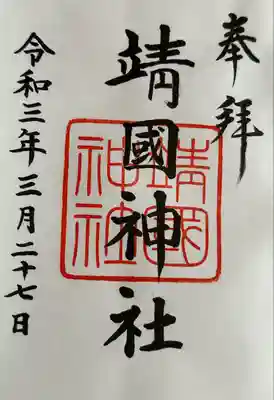 奉拝
靖國神社
靖國
神社
令和三年三月二十七日